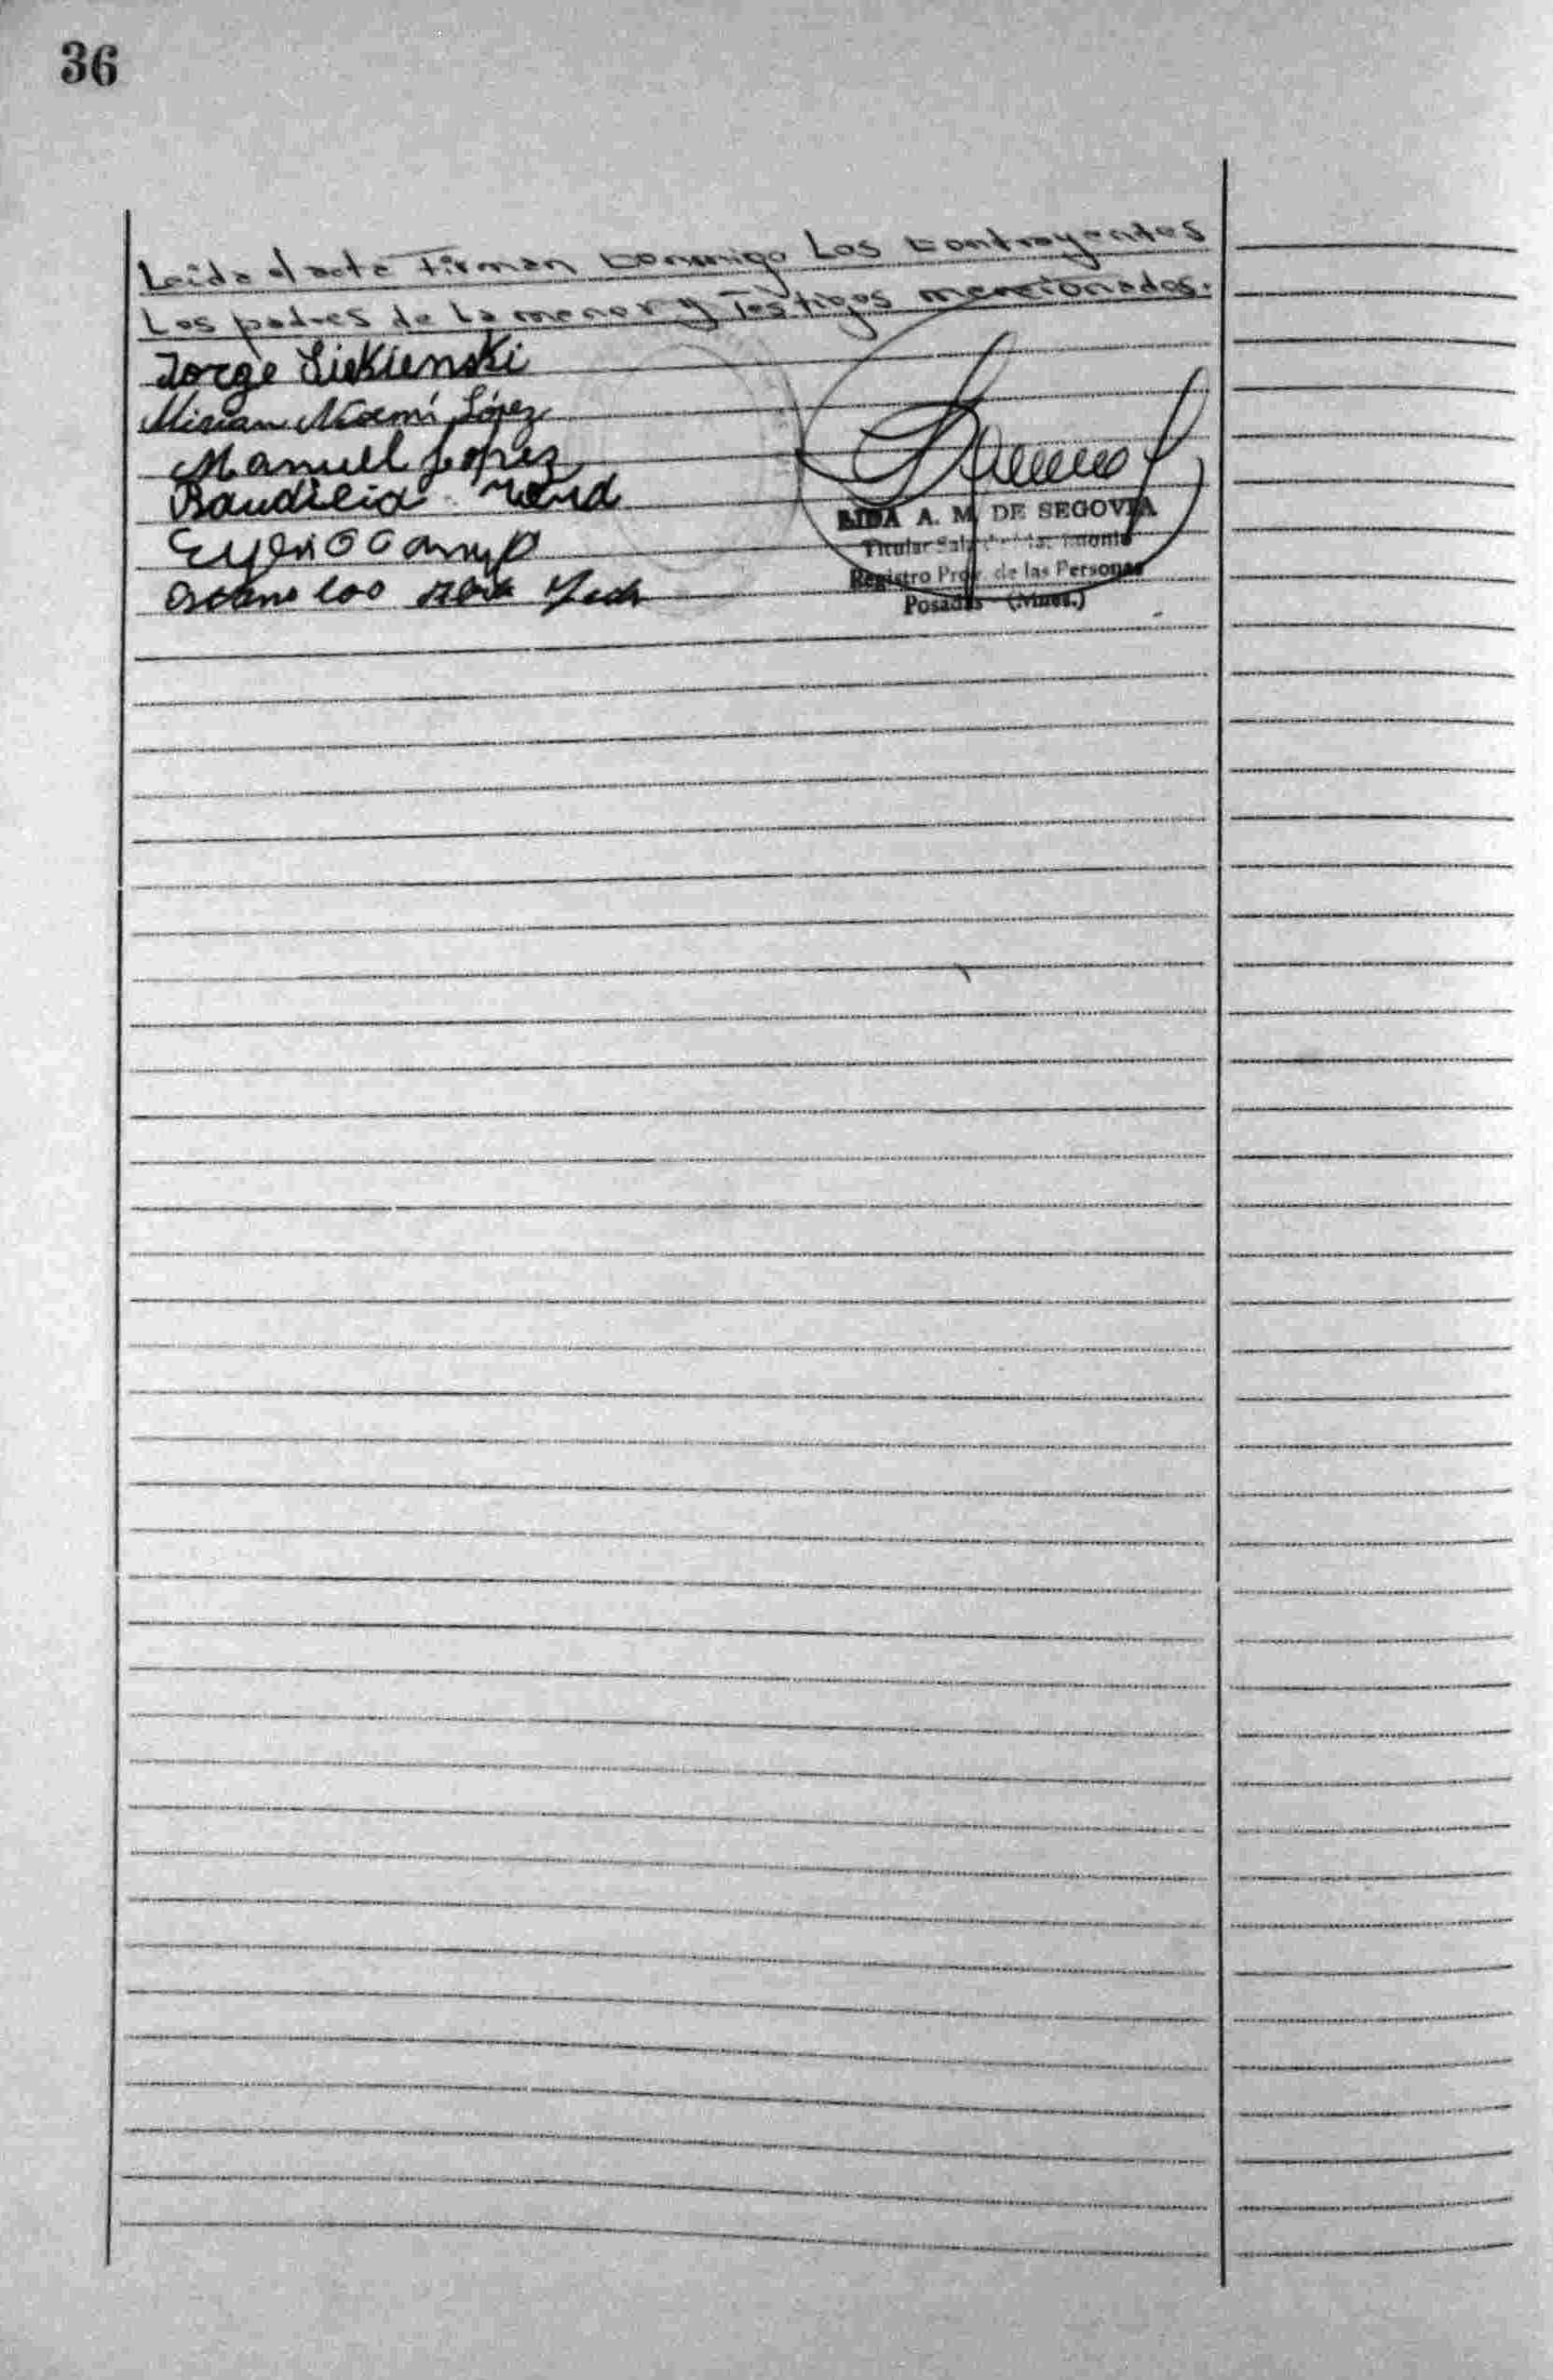 36
Leida el acta firman conmigo Los contrayentes
Los padres de la menor y Testigos mencionados.
Jorge Siekienski
Mirian Noemí López
Manuel Lopez
Baudilia
LIDA A. M. DE SEGOVIA
Titular Sala
Registro Prov. de las Personas
Posadas (Mnes.)